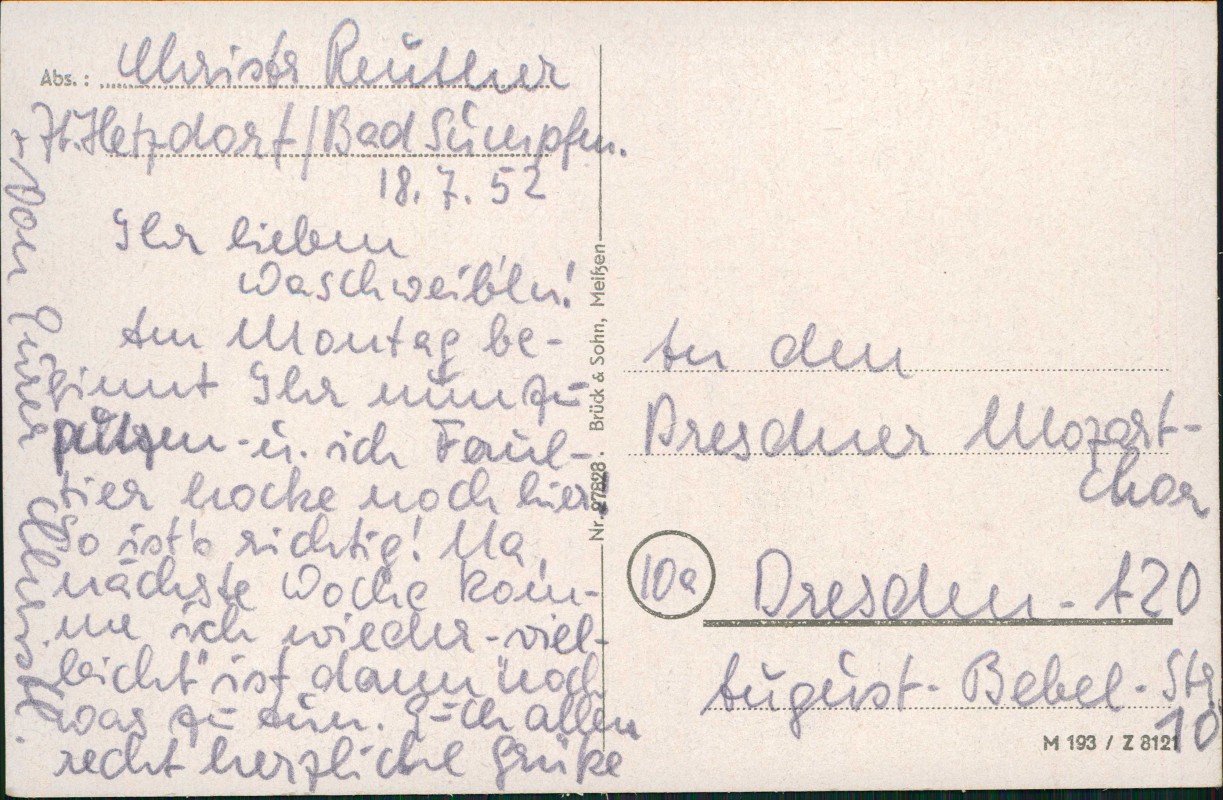 Abs.: Christa Reuther
Hetzdorf/Bad
18.7.52
Ihr lieben
Waschweib'ln!
Am Montag be-
ginnt Ihr nun zu
putzen - u. ich Faul-
tier hocke noch hier.
So ist's richtig! Na,
nächste Woche kom-
me ich wieder - viel-
leicht ist dann noch
was zu tun. Euch allen
recht herzliche Grüße
von Eurer Christa.
Nr. 27828 · Brück & Sohn, Meißen
An den
Dresdner Mozart-
chor
10a Dresden - A20
August-Bebel-Str
10
M 193 / Z 8121